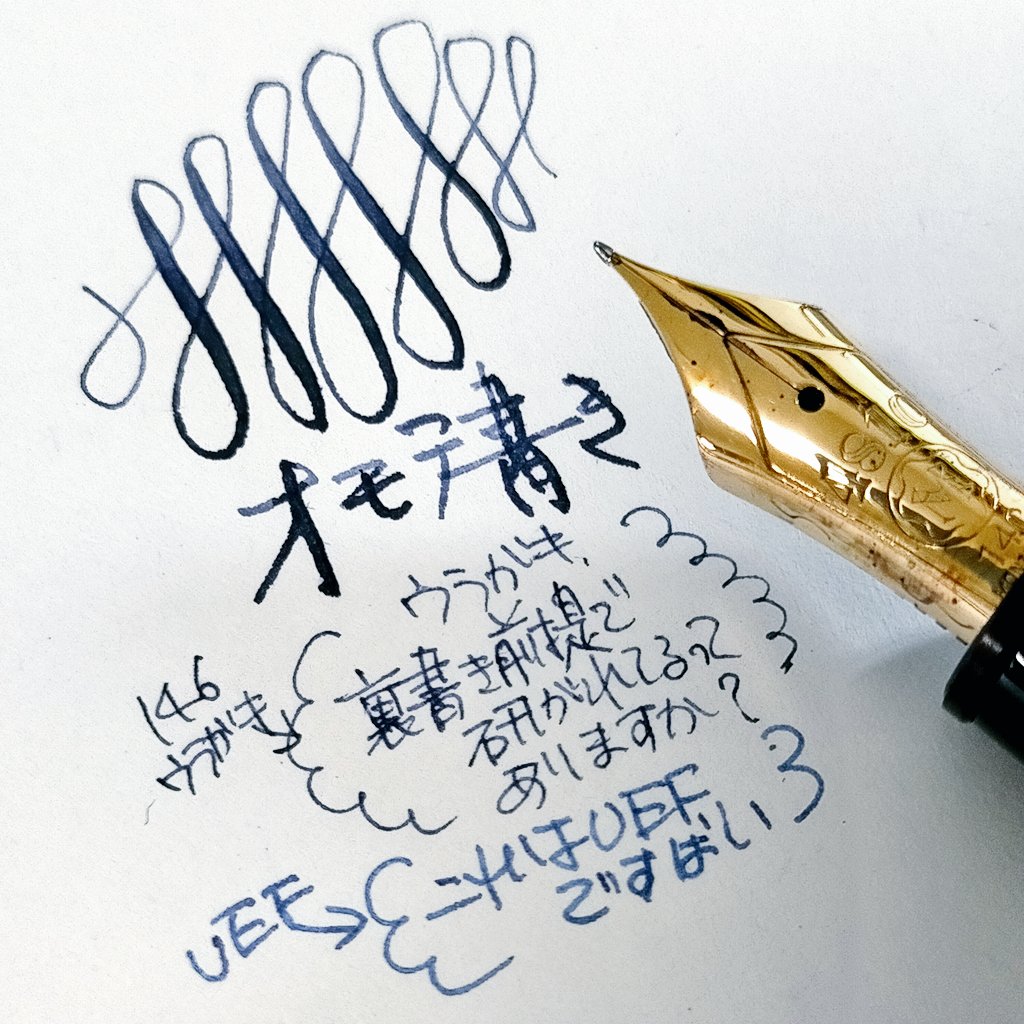 オモテ書き
ウラがき、
裏書き前提で
研がれてるって
ありますか?
146
ウラがき
これはUEF
ですばい
UEF